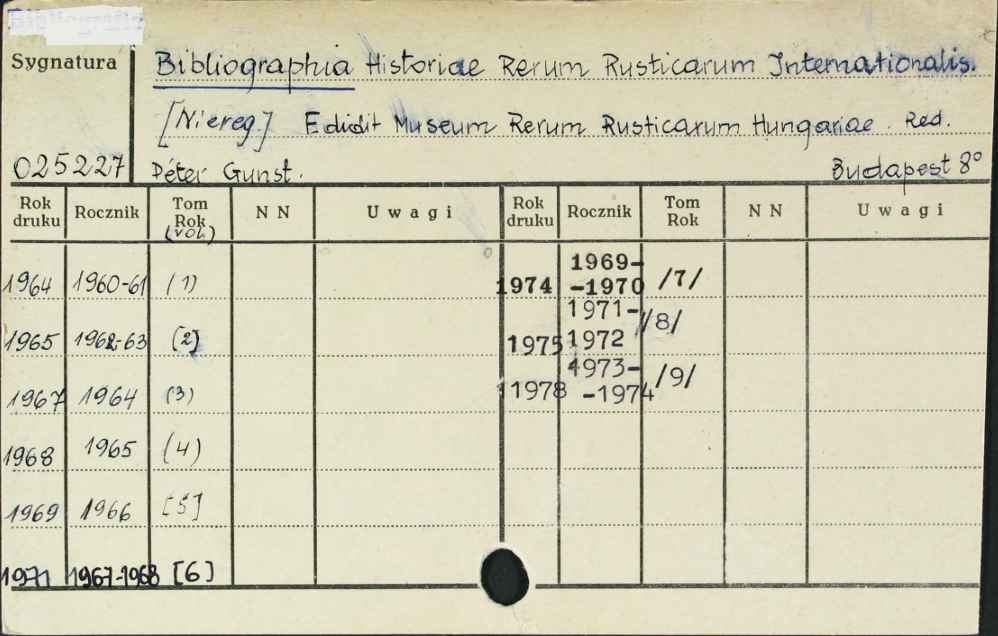 Sygnatura
Bibliographia Historiae Rerum Rusticarum Internationalis.
[Niereg.] Edidit Museum Rerum Rusticarum Hungariae. Red.
025227 Péter Gunst. Budapest 8°
Rok druku Rocznik Tom Rok (vol.) NN Uwagi Rok druku Rocznik Tom Rok NN Uwagi
1964 1960-61 (1) 1974 1969--1970 /7/
1965 1962-63 [2] 1975 1971-1972 /8/
1967 1964 (3) 1978 1973--1974 /9/
1968 1965 (4)
1969 1966 [5]
1971 1967-1968 [6]